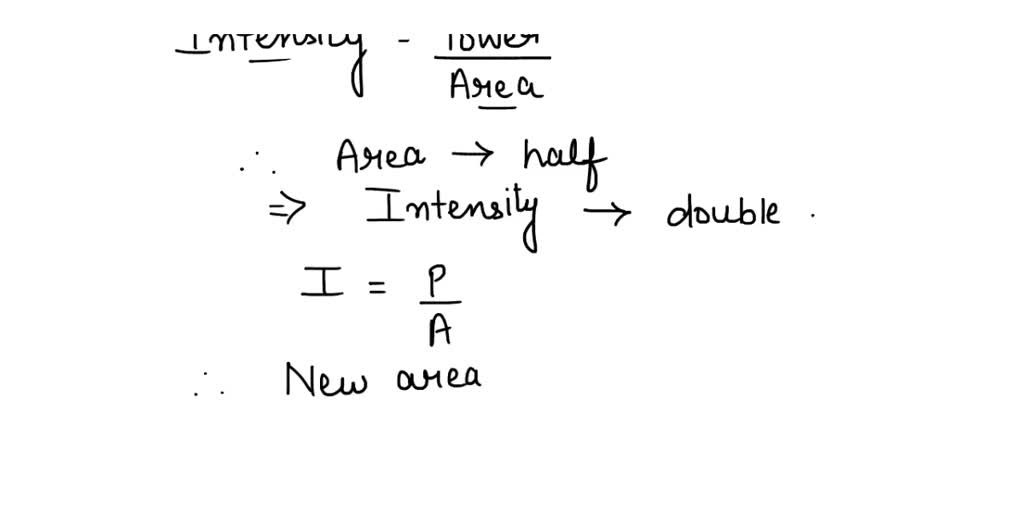 Intensity - Power
Area
∴ Area → half
⇒ Intensity → double .
I = P
A
∴ New area